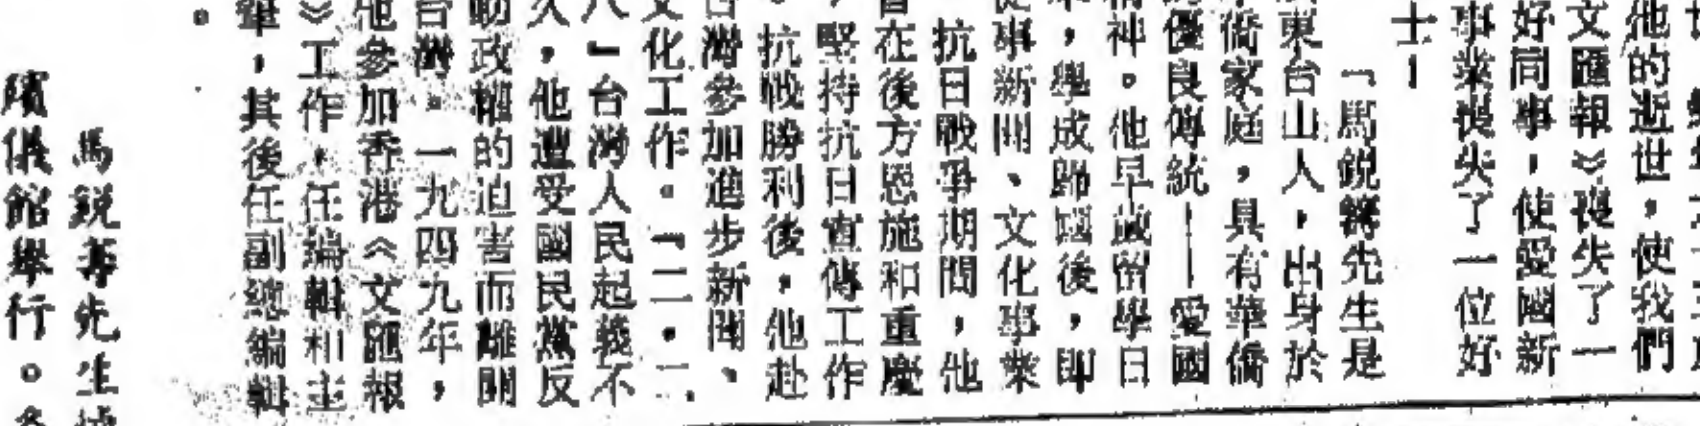 他的逝世，使我們
文匯報》喪失了一
好同事，使愛國新
事業喪失了一位好
士！
「馬銳籌先生是
東台山人，出身於
僑家庭，具有華僑
優良傳統——愛國
神。他早歲留學日
，學成歸國後，即
事新聞、文化事業
抗日戰爭期間，他
在後方恩施和重慶
，堅持抗日宣傳工作
。抗戰勝利後，他赴
台灣參加進步新聞、
文化工作。「二．二
八」台灣人民起義不
久，他遭受國民黨反
動政權的迫害而離開
台灣。一九四九年，
他參加香港《文匯報
》工作，任編輯和主
筆，其後任副總編輯
。
馬銳籌先生
殯儀館舉行。